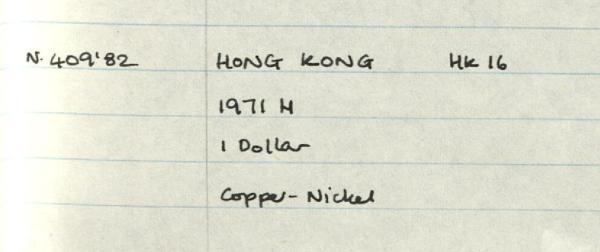 N. 409'82 HONG KONG HK 16
1971 H
1 Dollar
Copper-Nickel